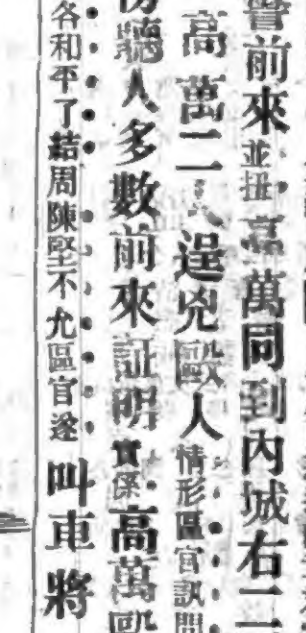 警前來並扭高萬同到內城右二
高萬二人逞兇毆人情形區官訊問
旁聽人多數前來証明實係高萬毆
各和平了結周陳堅不允區官遂叫車將